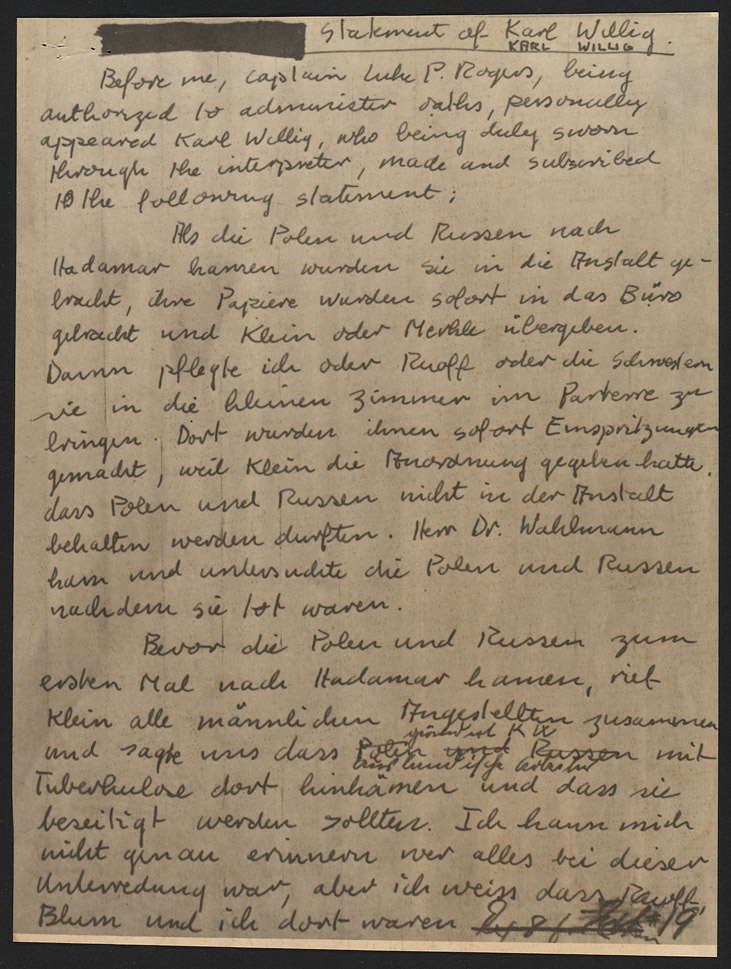 Statement of Karl Willig.
KARL WILLIG
Before me, Captain Luke P. Rogers, being
authorized to administer oaths, personally
appeared Karl Willig, who being duly sworn
through the interpreter, made and subscribed
to the following statement;
Als die Polen und Russen nach
Hadamar kamen wurden sie in die Anstalt ge-
bracht, ihre Papiere wurden sofort in das Büro
gebracht und Klein oder Merkle übergeben.
Dann pflegte ich oder Ruoff oder die Schwestern
sie in die kleinen Zimmer im Parterre zu
bringen. Dort wurden ihnen sofort Einspritzungen
gemacht, weil Klein die Anordnung gegeben hatte,
dass Polen und Russen nicht in der Anstalt
behalten werden durften. Herr Dr. Wahlmann
kam und untersuchte die Polen und Russen
nachdem sie tot waren.
Bevor die Polen und Russen zum
ersten Mal nach Hadamar kamen, rief
Klein alle männlichen Angestellten zusammen
KW
und sagte uns dass Polen und Russen mit
ausländische Arbeiter
Tuberkulose dort hinkämen und dass sie
beseitigt werden sollten. Ich kann mich
nicht genau erinnern wer alles bei dieser
Unterredung war, aber ich weiss dass Ruoff,
Blum und ich dort waren